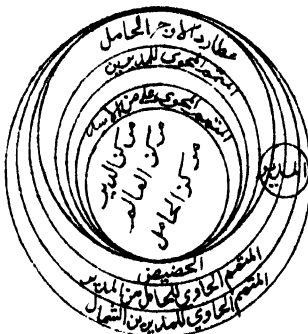 عطارد الاوج الحامل
المتمم المحوى للمدير من
المتمم المحوى
مركز المدير
مركز العالم
مركز الحامل
المدير
الحضيض
المتمم الحاوى للحامل من المدير
المتمم الحاوى للمدير من الشمال